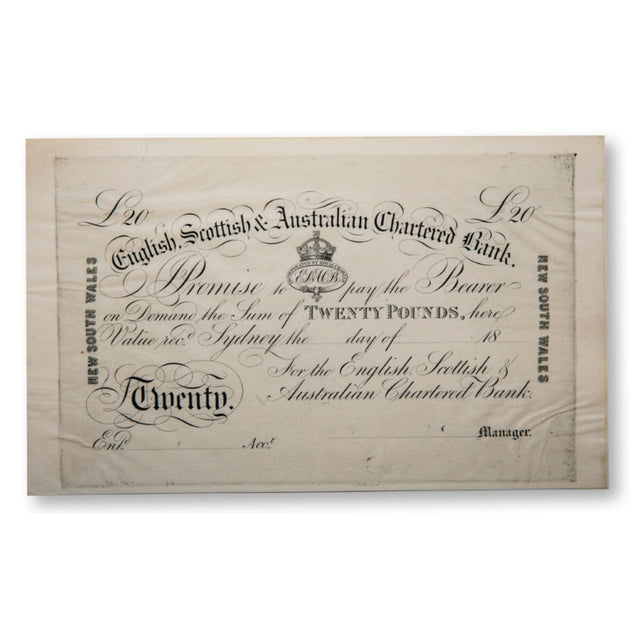 £20 £20
English, Scottish & Australian Chartered Bank.
I Promise to pay the Bearer
on Demand the Sum of TWENTY POUNDS, here
Value, rec.d Sydney the day of 18
For the English, Scottish &
Twenty. Australian Chartered Bank.
Ent. Acct. Manager.
NEW SOUTH WALES
NEW SOUTH WALES